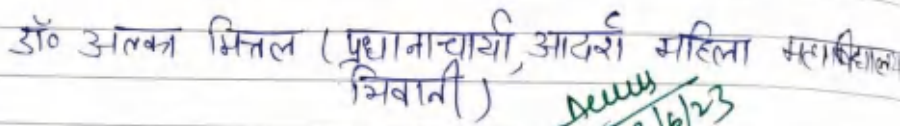 डॉ० अलका मित्तल (प्रधानाचार्या, आदर्श महिला महाविद्यालय
भिवानी)
/6/23